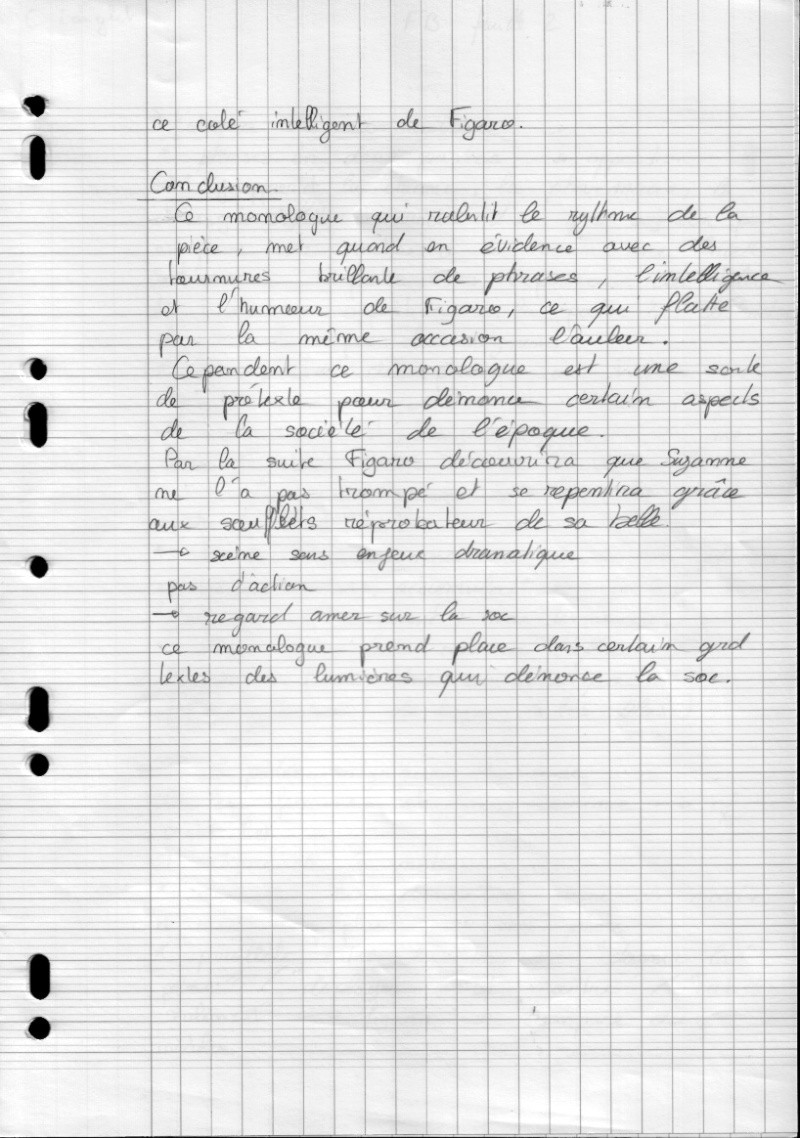 ce coté intelligent de Figaro.
Conclusion
Ce monologue qui ralentit le rythme de la
pièce, met quand en évidence avec des
tournures brillante de phrases, l'intelligence
et l'humour de Figaro, ce qui flatte
par la même occasion l'auteur.
Cependent ce monologue est une sorte
de prétexte pour démonce certain aspects
de la société de l'époque.
Par la suite Figaro découvrira que Suzanne
ne l'a pas trompé et se repentira grâce
aux soufflets réprobateur de sa belle.
→ scène sans enjeux dramatique
pas d'action
→ regard amer sur la soc
ce monologue prend place dans certain grd
textes des lumières qui démonce la soc.